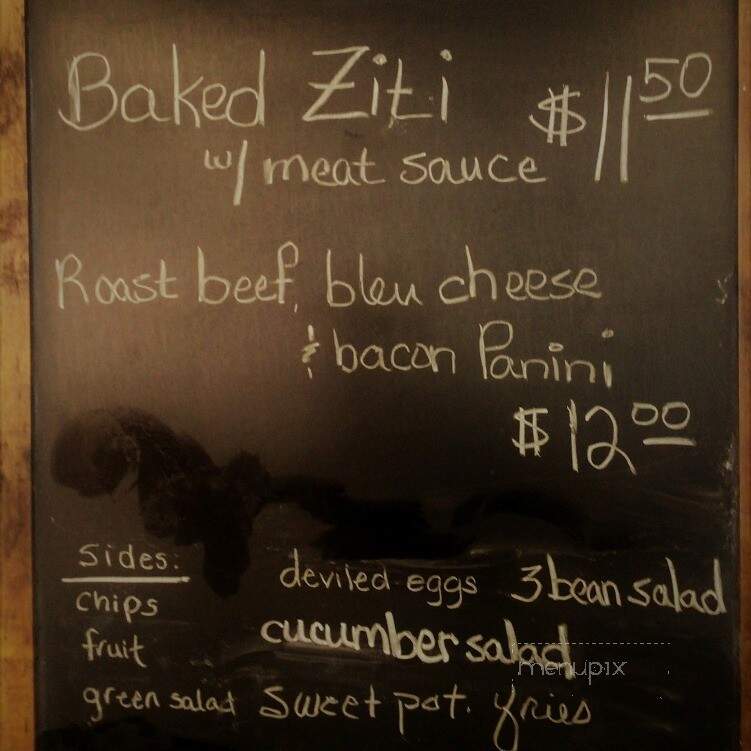 Baked Ziti $11 50
w/ meat sauce
Roast beef, bleu cheese
& bacon Panini
$12 00
Sides:
deviled eggs 3 bean salad
chips
cucumber salad
fruit
menupix
green salad sweet pot. fries